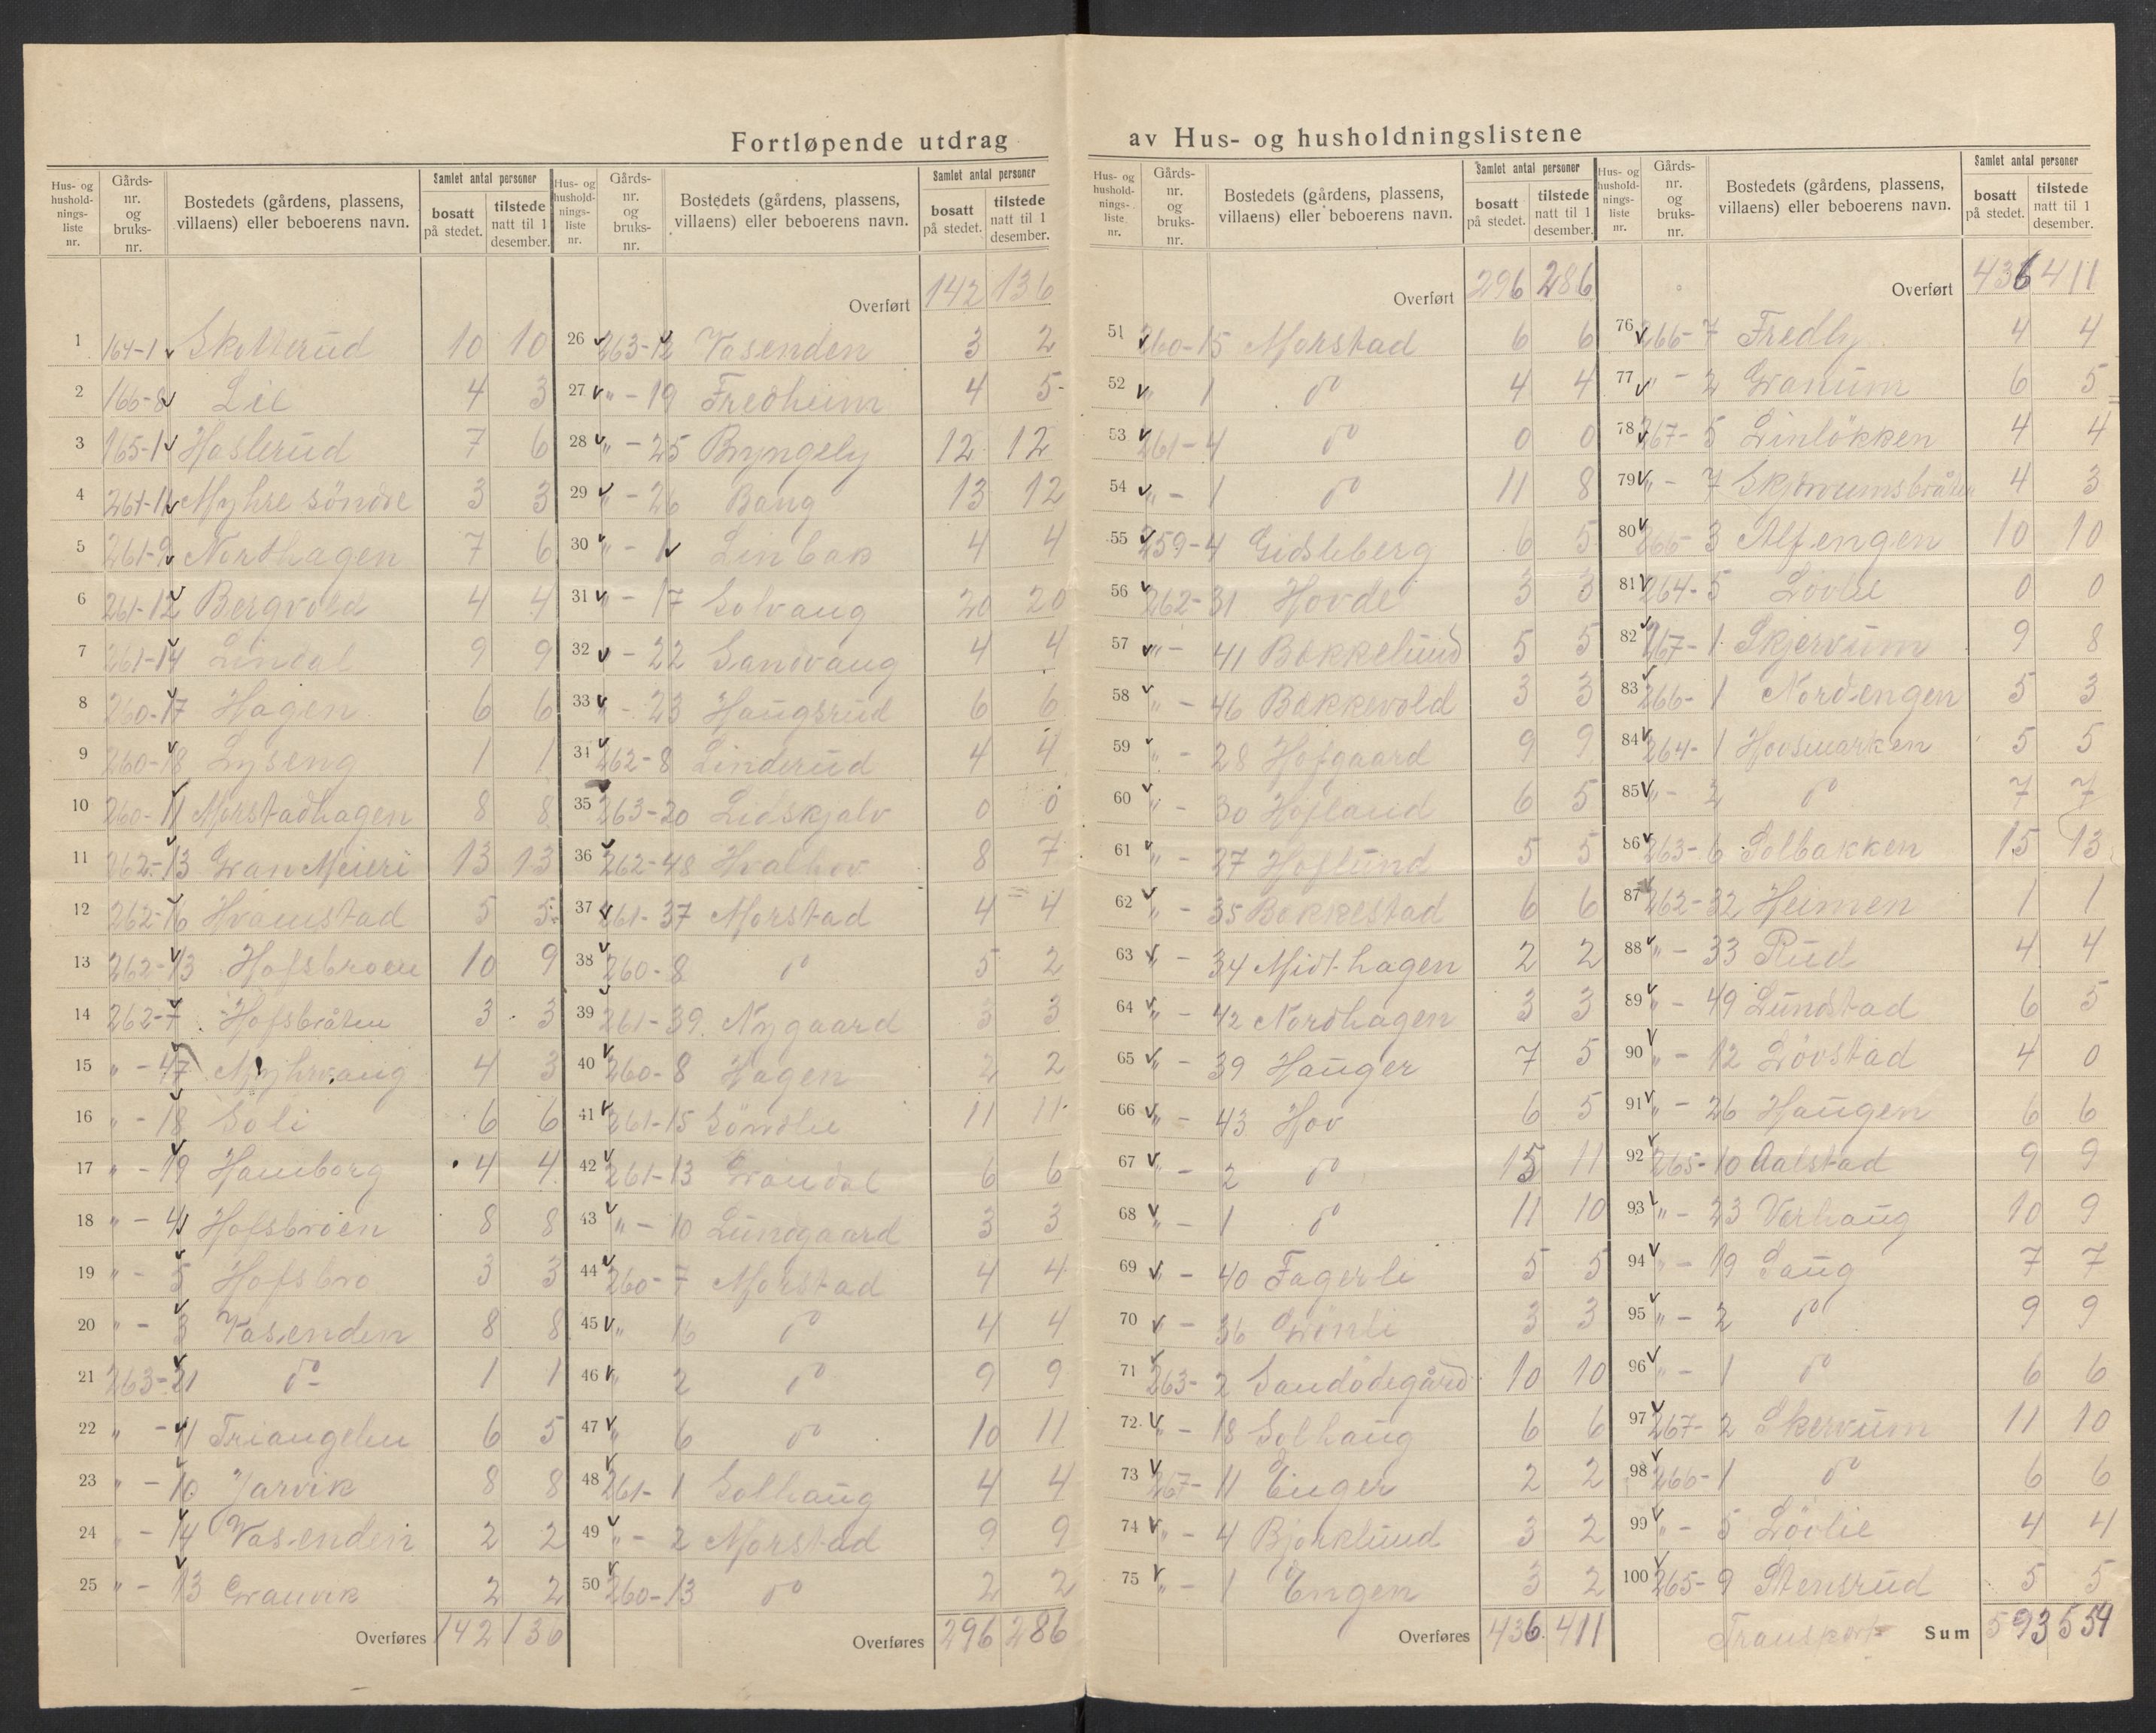 Fortløpende utdrag av Hus- og husholdningslistene
Hus- og husholdningsliste nr. Gårds-nr. og bruks-nr. Bostedets (gårdens, plassens, villaens) eller beboerens navn. Samlet antal personer bosatt på stedet. tilstede natt til 1 desember.
1 164-1 Skotterud 10 10
2 166-8 Lie 4 3
3 165-1 Haslerud 7 6
4 261-11 Myhre söndre 3 3
5 261-9 Nordhagen 7 6
6 261-12 Bergvold 4 4
7 261-14 Lindal 9 9
8 260-17 Hagen 6 6
9 260-18 Lyseng 1 1
10 260-11 Morstadhagen 8 8
11 262-13 Gran Meieri 13 13
12 262-16 Hvamstad 5 5
13 262-13 Hofsbroen 10 9
14 262-7 Hofsbråten 3 3
15 " - 47 Myhrvang 4 3
16 " - 18 Soli 6 6
17 " - 19 Hamborg 4 4
18 " - 4 Hofsbroen 8 8
19 " - 5 Hofsbro 3 3
20 " - 3 Vasenden 8 8
21 263-21 do 1 1
22 " - 11 Triangelen 6 5
23 " - 10 Jarvik 8 8
24 " - 14 Vasenden 2 2
25 " - 13 Granvik 2 2
Overføres 142 136
Hus- og husholdningsliste nr. Gårds-nr. og bruks-nr. Bostedets (gårdens, plassens, villaens) eller beboerens navn. Samlet antal personer bosatt på stedet. tilstede natt til 1 desember.
Overført 142 136
26 263-12 Vasenden 3 2
27 " - 19 Fredheim 4 5
28 " - 25 Bryngely 12 12
29 " - 26 Bang 13 12
30 " - 1 Linbak 4 4
31 " - 17 Solvang 20 20
32 " - 22 Sandvang 4 4
33 " - 23 Haugsrud 6 6
34 262-8 Linderud 4 4
35 263-20 Lidskjalv 0 0
36 262-48 Hvalhov 8 7
37 261-37 Morstad 4 4
38 260-8 do 5 2
39 261-39 Nygaard 3 3
40 260-8 Hagen 2 2
41 261-15 Söndlie 11 11
42 261-13 Grandal 6 6
43 " - 10 Lundgaard 3 3
44 260-7 Morstad 4 4
45 " 16 do 4 4
46 " 2 do 9 9
47 " 6 do 10 11
48 261-1 Solhaug 4 4
49 " - 2 Morstad 9 9
50 260-13 do 2 2
Overføres 296 286
Hus- og husholdningsliste nr. Gårds-nr. og bruks-nr. Bostedets (gårdens, plassens, villaens) eller beboerens navn. Samlet antal personer bosatt på stedet. tilstede natt til 1 desember.
Overført 296 286
51 260-15 Morstad 6 6
52 " 1 do 4 4
53 261-4 do 0 0
54 " - 1 do 11 8
55 259-4 Gidsleberg 6 5
56 262-31 Hovde 3 3
57 " - 41 Bakkelund 5 5
58 " - 46 Bakkevold 3 3
59 " - 28 Hofgaard 9 9
60 " - 30 Hofland 6 5
61 " - 27 Hoflund 5 5
62 " - 35 Bakkestad 6 6
63 " - 34 Midthagen 2 2
64 " - 42 Nordhagen 3 3
65 " - 39 Hauger 7 5
66 " - 43 Hov 6 5
67 " - 2 do 15 11
68 " - 1 do 11 10
69 " - 40 Fagerli 5 5
70 " - 36 Grönli 3 3
71 263-2 Sandödegård 10 10
72 " - 18 Solhaug 6 6
73 267-11 Enger 2 2
74 " - 4 Bjørklund 3 2
75 " - 1 Engen 3 2
Overføres 436 411
Hus- og husholdningsliste nr. Gårds-nr. og bruks-nr. Bostedets (gårdens, plassens, villaens) eller beboerens navn. Samlet antal personer bosatt på stedet. tilstede natt til 1 desember.
Overført 436 411
76 266-7 Fredly 4 4
77 " - 2 Granum 6 5
78 267-5 Linløkken 4 4
79 " - 7 Skjervumsbråten 4 3
80 266-3 Alfengen 10 10
81 264-5 Lövlie 0 0
82 267-1 Skjervum 9 8
83 266-1 Nordengen 5 3
84 264-1 Hovsmarken 5 5
85 " - 2 do 7 7
86 263-6 Solbakken 15 13
87 262-32 Heimen 1 1
88 " - 33 Rud 4 4
89 " - 49 Lundstad 6 5
90 " - 12 Lövstad 4 0
91 " - 26 Haugen 6 6
92 265-10 Aalstad 9 9
93 " - 23 Verhaug 10 9
94 " - 19 Saug 7 7
95 " - 2 do 9 9
96 " - 1 do 6 6
97 267-2 Skervum 11 10
98 266-1 do 6 6
99 " - 5 Lövlie 4 4
100 265-9 Stensrud 5 5
Transport Sum 593 554